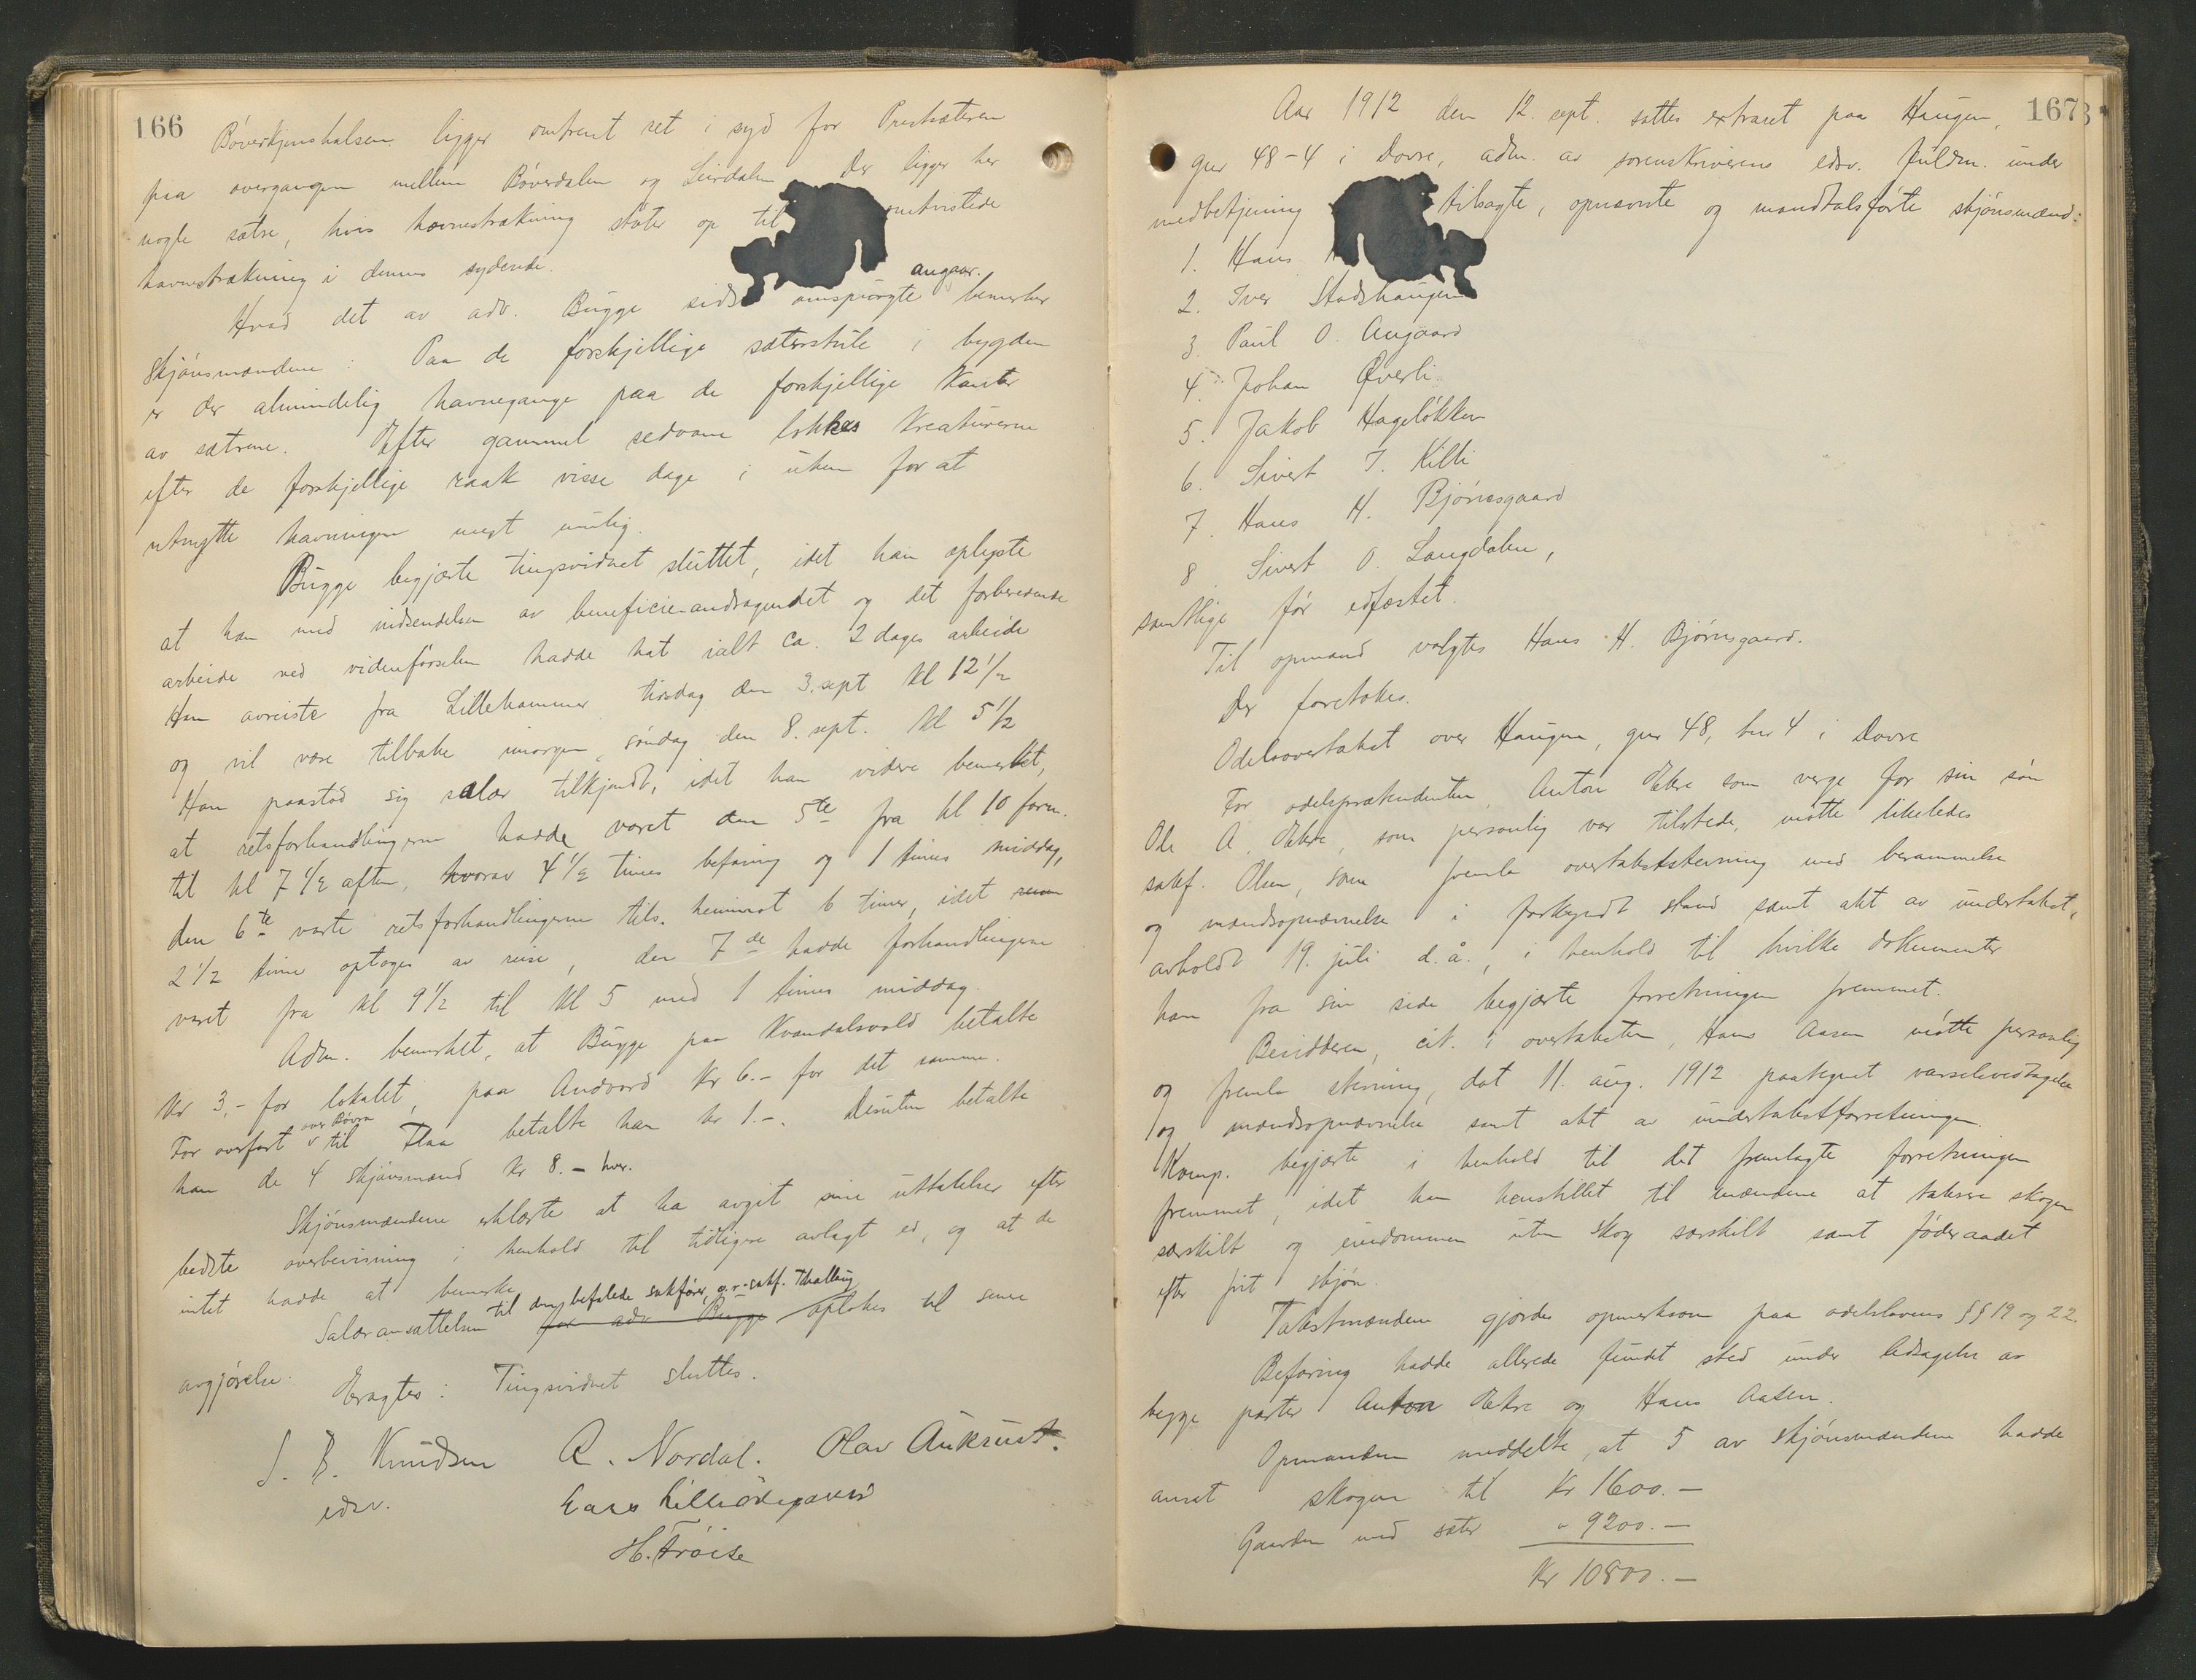 166
Bøverkjernshalsen ligger omtrent ret i syd for Prestsæteren
paa overgangen mellem Bøverdalen og Leirdalen Der ligger her
nogle sætre, hvis havnestrækning støter op til omtvistede
havnestrækning i dennes sydende.
angaar.
Hvad det av adv. Bugge sidst omspurgte bemerker
skjønsmændene: Paa de forskjellige sæterstule i bygden
er der almindelig havnegange paa de forskjellige kanter
av sætrene. Efter gammel sedvane lokkes kreaturerne
efter de forskjellige raak visse dage i uken for at
utnytte havningen mest mulig.
Bugge begjærte tingsvidnet sluttet, idet han oplyste
at han med indsendelsen av beneficieandragendet og det forberedende
arbeide ved vidneførselen hadde hat ialt ca. 2 dages arbeide
Han avreiste fra Lillehammer tirsdag den 3. sept kl 12 1/2
og vil være tilbake imorgen, søndag den 8. sept. kl 5 1/2
Han paastod sig salær tilkjendt, idet han videre bemerket,
at retsforhandlingerne hadde varet den 5te fra kl 10 form.
til kl 7 1/2 aften, hvorav 4 1/2 times befaring og 1 times middag,
den 6te varte retsforhandlingerne tils. henimot 6 timer, idet
2 1/2 time optoges av reise, den 7de hadde forhandlingerne
varet fra kl 9 1/2 til kl 5 med 1 times middag.
Adm. bemerket, at Bugge paa Kvandalsvold betalte
kr 3,- for lokalet, paa Andvord kr 6.- for det samme.
over Bøvra
For overfart v til Flaa betalte han kr 1.-. Desuten betalte
han de 4 skjønsmænd kr 8.- hver.
Skjønsmændene erklærte at ha avgit sine uttalelser efter
bedste overbevisning i henhold til tidligere avlagt ed, og at de
intet hadde at bemerke
til den befalede sakfører, o.r.sakf. Thallaug
Salæransættelsen for adv Bugge optokes til senere
avgjørelse.
Eragtes: Tingsvidnet sluttes.
J. B. Knudsen A. Nordal. Olav Aukrust.
edsv. Lars Lilleødegaard
H. Frøise
167
Aar 1912 den 12. sept. sattes extraret paa Haugen,
gnr 48-4 i Dovre, adm. av sorenskriverens edsv. fuldm. under
medbetjening tilsagte, opnævnte og mandtalsførte skjønsmænd:
1. Hans
2. Iver Stadshaugen
3. Paul O. Angaard
4. Johan Øverli
5. Jakob Hageløkken
6. Sivert T. Killi
7. Hans H. Bjørnsgaard
8 Sivert O. Langdalen,
samtlige før edfæstet.
Til opmand valgtes Hans H. Bjørnsgaard.
Der foretokes.
Odelsovertakst over Haugen, gnr 48, bnr 4 i Dovre
For odelsprætendenten, Anton Ekre som verge for sin søn
Ole A. Ekre, som personlig var tilstede, møtte likeledes
sakf. Olsen, som fremla overtakststevning med berammelse
og mandsopnævnelse i forkyndt stand samt akt av undertakst,
avholdt 19. juli d.å., i henhold til hvilke dokumenter
han fra sin side begjærte forretningen fremmet.
Besidderen, cit. i overtaksten, Hans Aasen møtte personlig
og fremla stevning, dat 11. aug. 1912 paategnet varselsvedtagelse
og mandsopnævnelse samt akt av undertakstforretningen.
Komp. begjærte i henhold til det fremlagte forretningen
fremmet, idet han henstillet til mændene at taksere skogen
særskilt og eiendommen uten skog særskilt samt føderaadet
efter frit skjøn.
Takstmændene gjordes opmerksom paa odelslovens §§ 19 og 22.
Befaring hadde allerede fundet sted under ledsagelse av
begge parter Anton Ekre og Hans Aasen.
Opmanden meddelte, at 5 av skjønsmændene hadde
anset skogen til kr 1600.-
Gaarden med sæter " 9200.-
kr 10800.-